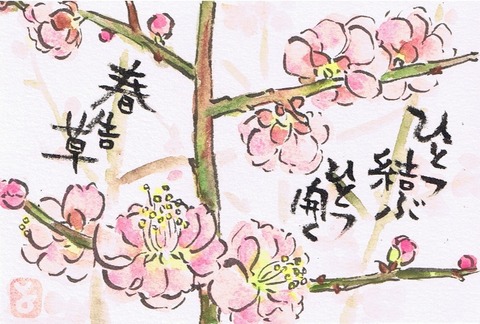 ひとつ
結ぶ
ひとつ
開く
春告
草